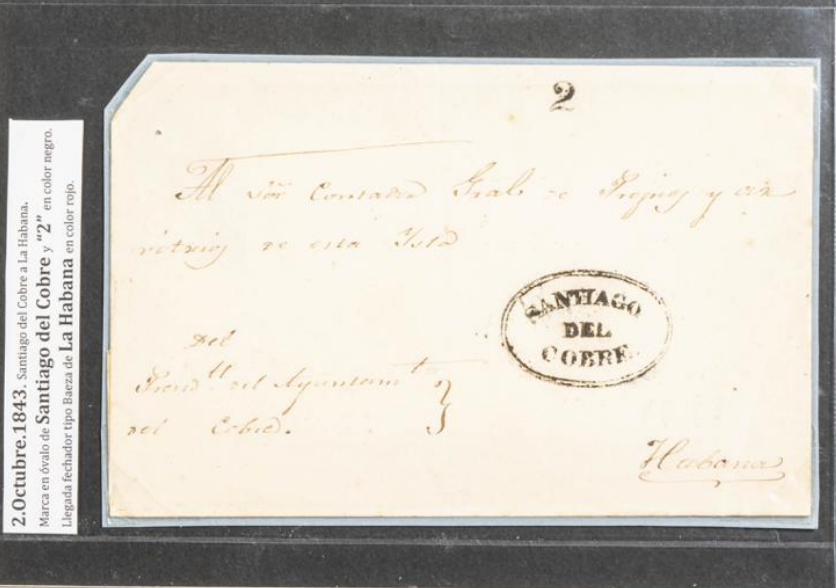 2.Octubre.1843. Santiago del Cobre a La Habana.
Marca en óvalo de Santiago del Cobre y "2" en color negro.
Llegada fechador tipo Baeza de La Habana en color rojo.
2
Al Sör Contador Gral de Propios y ar
vitrios de esta Ysla
SANTIAGO
DEL
COBRE.
Del
Presd.te del Ayuntam.to
del Cobre.
Habana